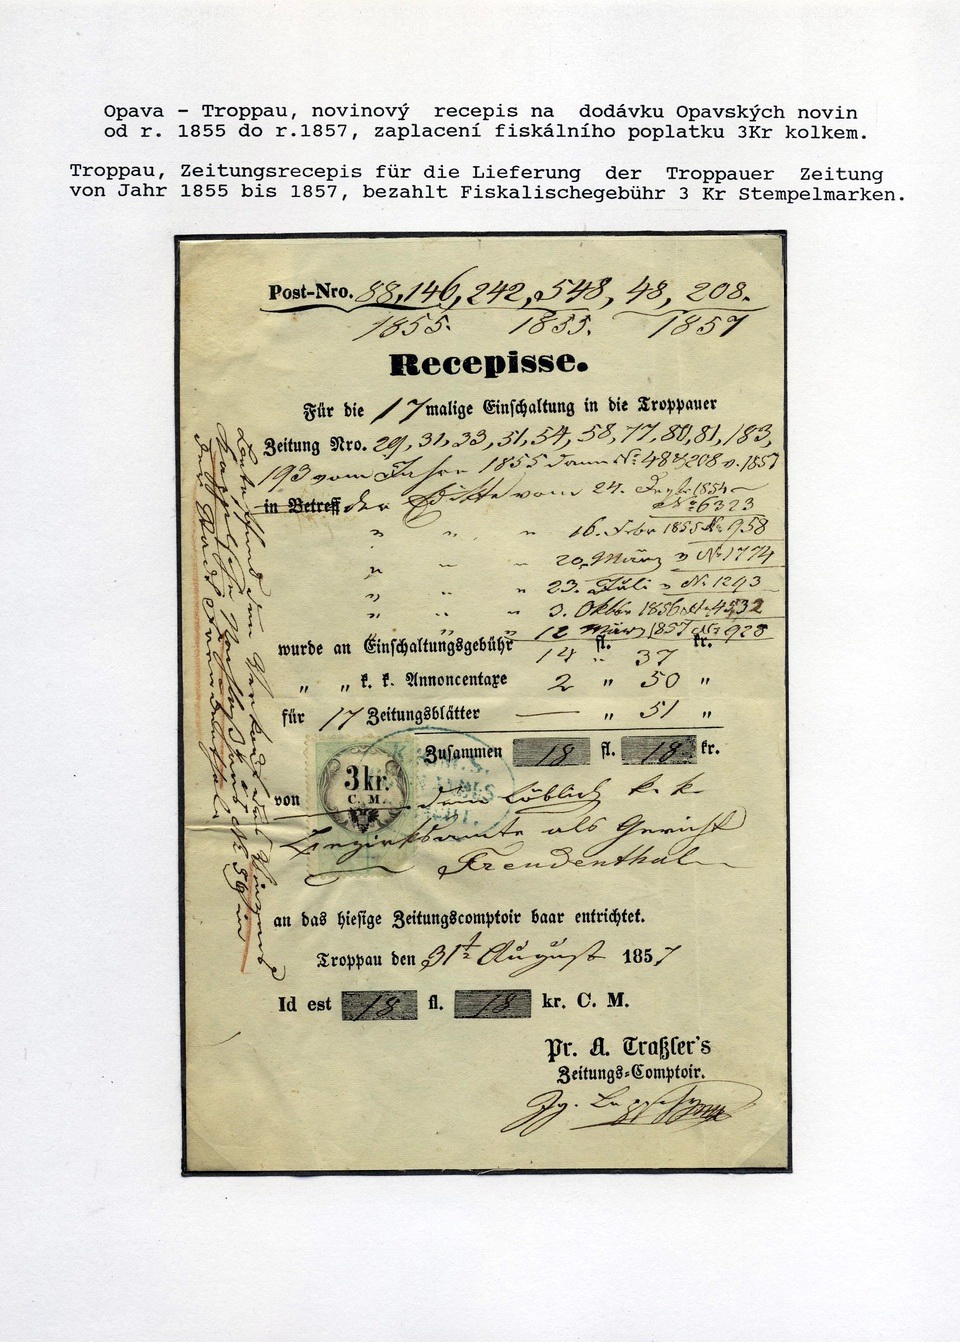 Opava – Troppau, novinový recepis na dodávku Opavských novin
od r. 1855 do r.1857, zaplacení fiskálního poplatku 3Kr kolkem.
Troppau, Zeitungsrecepis für die Lieferung der Troppauer Zeitung
von Jahr 1855 bis 1857, bezahlt Fiskalischegebühr 3 Kr Stempelmarken.
Post-Nro. 88, 146, 242, 548, 48, 208.
1855. 1855. 1857
Recepisse.
Für die 17malige Einschaltung in die Troppauer
Zeitung Nro. 29, 31, 33, 51, 54, 58, 77, 80, 81, 183,
193 vom Jahre 1855 dann No 48 208 v. 1857
in Betreff der Edikte vom 24. 1854
No 6323
" " " 16. Febr 1855 No 958
" " " 20. März " No 1774
" " " 23. Juli " No 1293
" " " 3. Oktbr 1856 No 4532
" " " 12 März 1857 No 928
wurde an Einschaltungsgebühr 14 fl. 37 kr.
" " k. k. Annoncentaxe 2 " 50 "
für 17 Zeitungsblätter — " 51 "
Zusammen 18 fl. 18 kr.
3 kr.
C. M.
von dem löblich k. k.
Bezirksamte als Gericht
Freudenthal
an das hiesige Zeitungscomptoir baar entrichtet.
Troppau den 31t August 1857
Id est 18 fl. 18 kr. C. M.
Pr. A. Traßler's
Zeitungs-Comptoir.